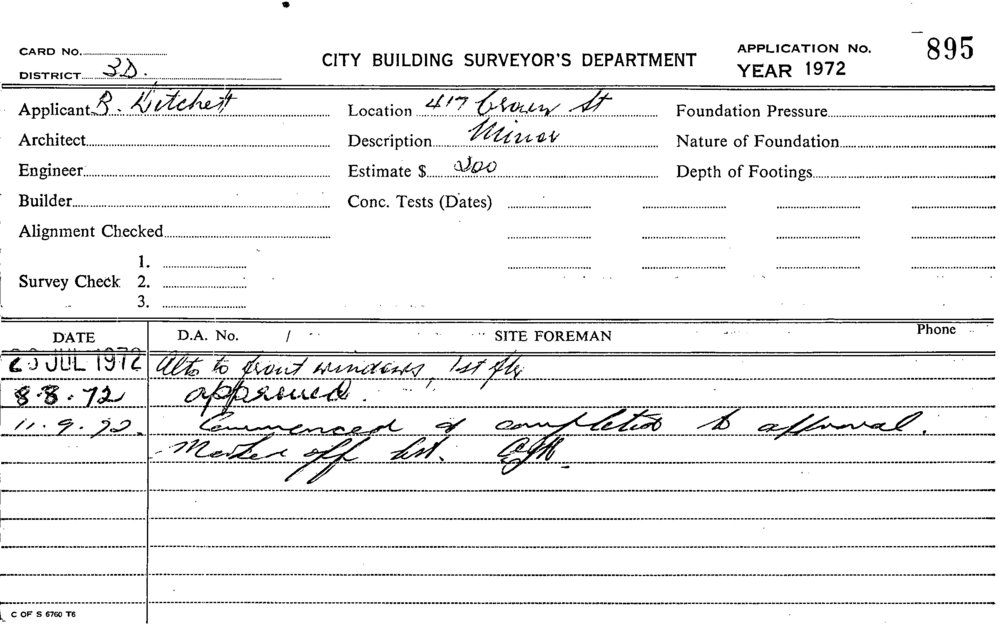 CARD NO.
DISTRICT 3D.
CITY BUILDING SURVEYOR'S DEPARTMENT
APPLICATION No. 895
YEAR 1972
Applicant R.
Location 417 Crown St
Foundation Pressure
Architect
Description Minor
Nature of Foundation
Engineer
Estimate $ 200
Depth of Footings
Builder
Conc. Tests (Dates)
Alignment Checked
Survey Check 1.
2.
3.
DATE D.A. No. / SITE FOREMAN Phone
JUL 1972 Alts to front windows, 1st flr
8.8.72 approved.
11.9.72. Commenced & completed to approval.
Marked off list.
C OF S 6760 T6